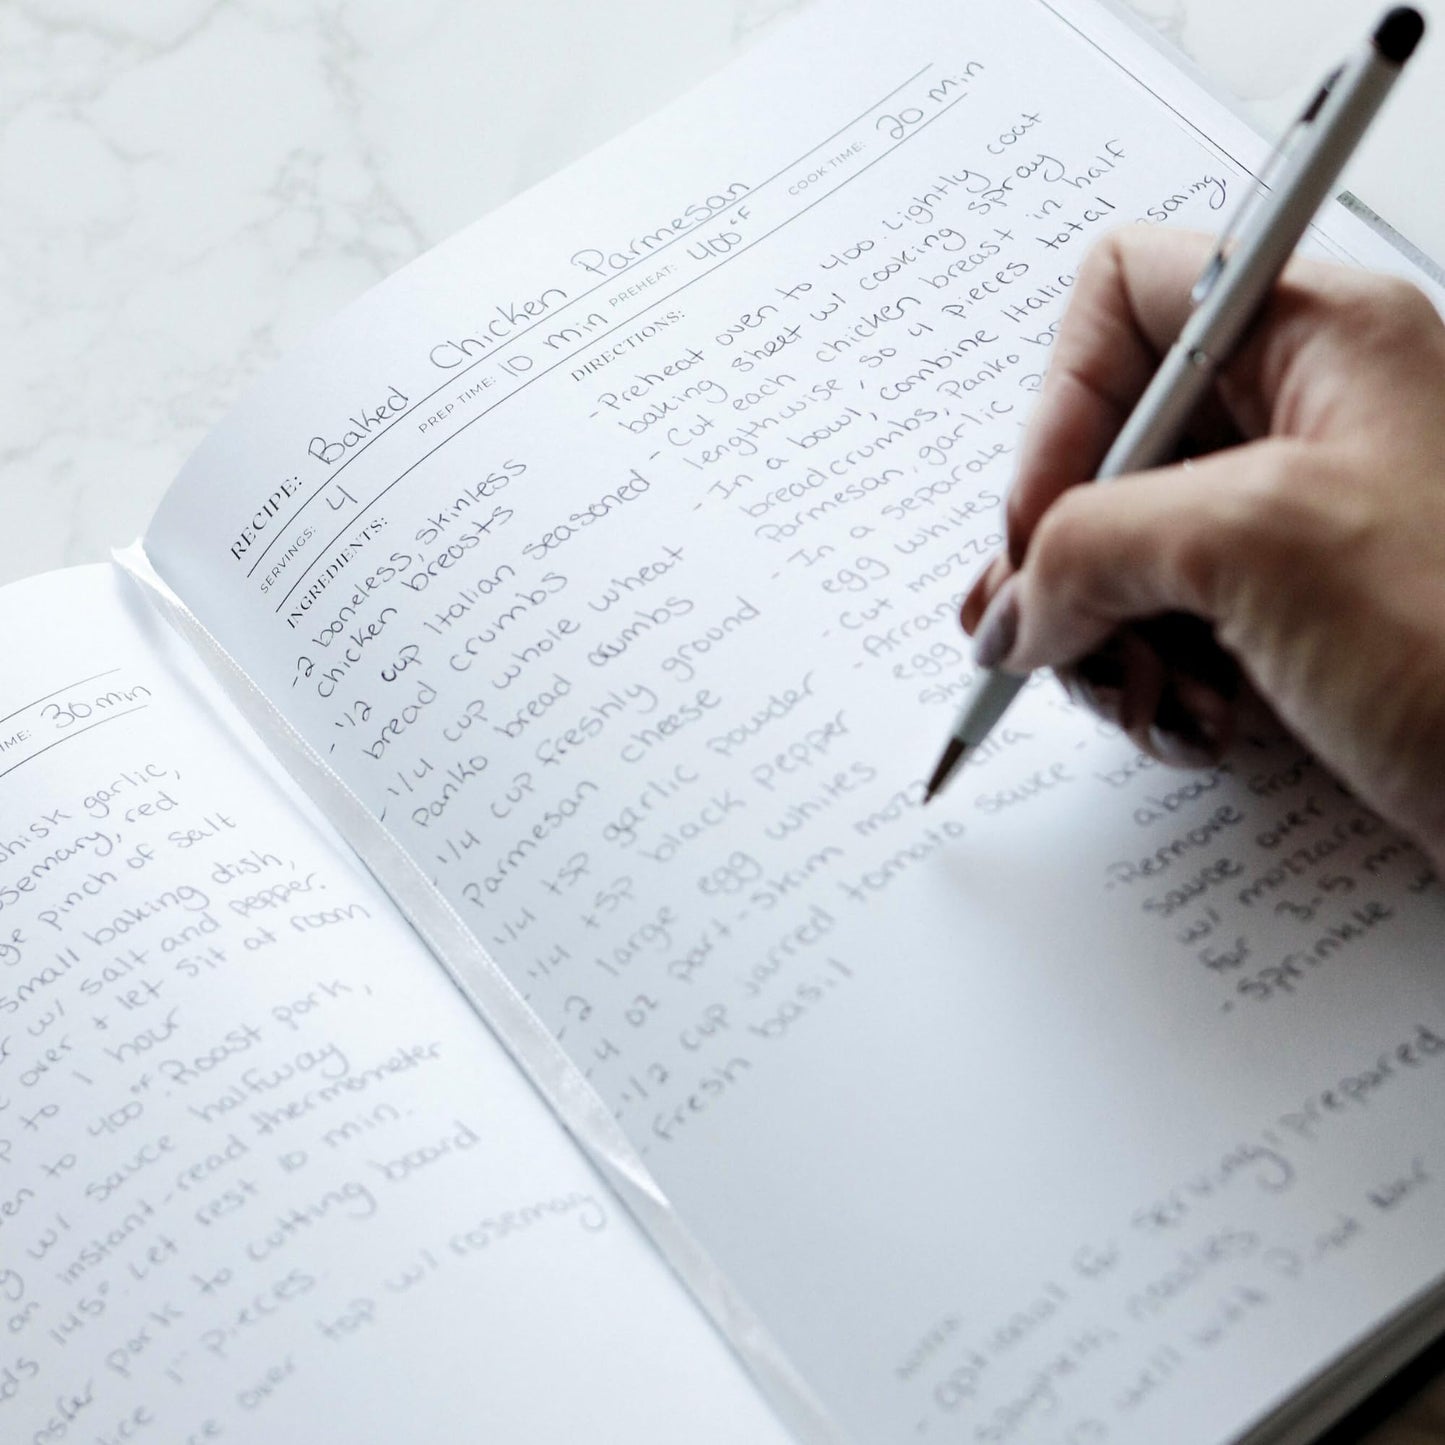 IME: 30 min
whisk garlic,
rosemary, red
pinch of salt
small baking dish,
w/ salt and pepper.
over + let sit at room
to 1 hour
to 400°F. Roast pork,
w/ sauce halfway
an instant-read thermometer
145° Let rest 10 min.
pork to cutting board
1" pieces.
over top w/ rosemary
RECIPE: Baked Chicken Parmesan
SERVINGS: 4 PREP TIME: 10 min PREHEAT: 400°F COOK TIME: 20 min
INGREDIENTS:
-2 boneless, skinless
chicken breasts
-1/2 cup Italian seasoned
bread crumbs
-1/4 cup whole wheat
Panko bread crumbs
-1/4 cup freshly ground
Parmesan cheese
-1/4 tsp garlic powder
-1/4 tsp black pepper
-2 large egg whites
-4 oz part-skim
-1/2 cup jarred tomato sauce
-Fresh basil
DIRECTIONS:
-Preheat oven to 400. Lightly coat
baking sheet w/ cooking spray
-Cut each chicken breast in half
lengthwise, so 4 pieces total
-In a bowl, combine
breadcrumbs, Panko
Parmesan, garlic
-In a separate
egg whites
-Cut
egg
about
-Remove
sauce over
w/
for 3-5
-Sprinkle
NOTES
-optional for serving: prepared
spaghetti noodles